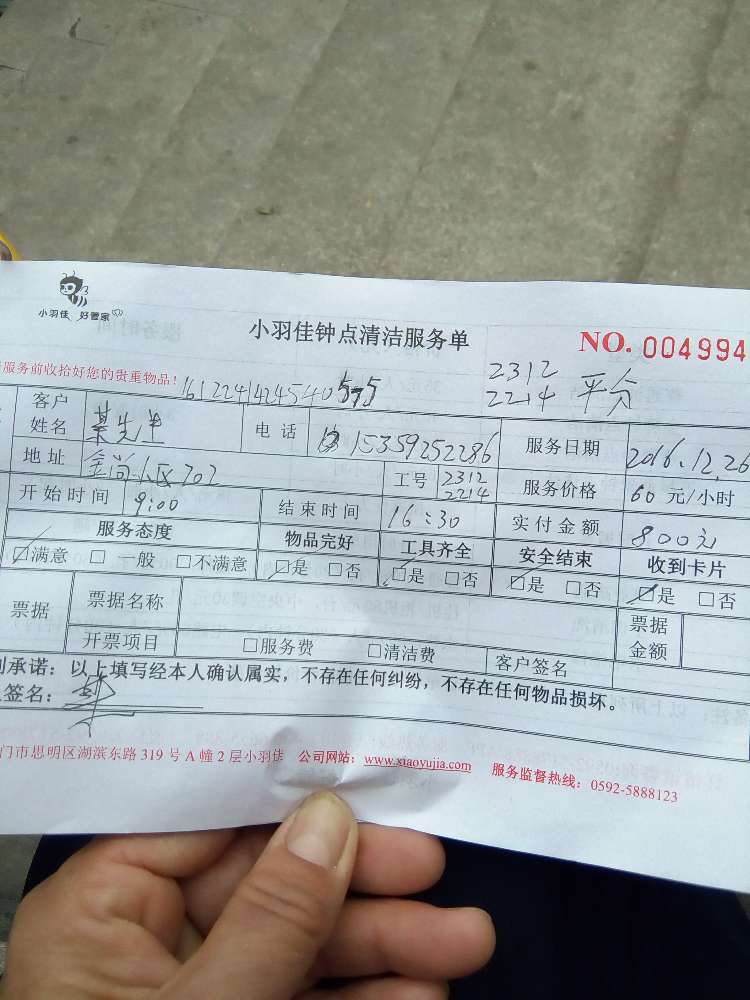 小羽佳 好管家
小羽佳钟点清洁服务单
NO. 004994
服务前收拾好您的贵重物品!
2312
2214 平分
客户姓名 某先生 电话 15359252286 服务日期 2016.12.26
地址 金尚小区702 工号 2312 2214 服务价格 60 元/小时
开始时间 9:00 结束时间 16:30 实付金额 800元
服务态度 物品完好 工具齐全 安全结束 收到卡片
☑满意 □一般 □不满意 ☑是 □否 ☑是 □否 ☑是 □否 ☑是 □否
票据 票据名称 票据金额
开票项目 □服务费 □清洁费 客户签名
承诺：以上填写经本人确认属实，不存在任何纠纷，不存在任何物品损坏。
签名：
门市思明区湖滨东路 319 号 A 幢 2 层小羽佳 公司网站：www.xiaoyujia.com 服务监督热线：0592-5888123